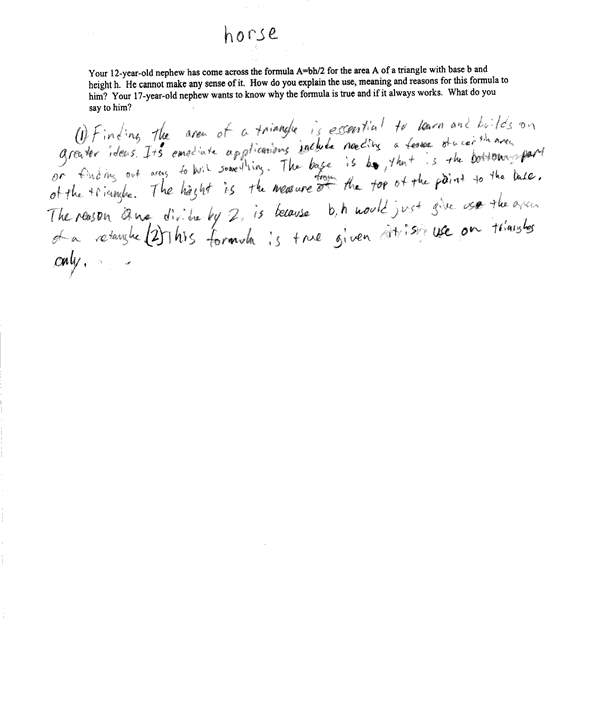 horse
Your 12-year-old nephew has come across the formula A=bh/2 for the area A of a triangle with base b and
height h. He cannot make any sense of it. How do you explain the use, meaning and reasons for this formula to
him? Your 17-year-old nephew wants to know why the formula is true and if it always works. What do you
say to him?
(1) Finding the area of a triangle is essential to learn and builds on
greater ideas. It's emediate applications include needing a fence of a certin area
or finding out areas to buil something. The base is b, that is the bottom part
of the triangle. The height is the measure from the top of the point to the base.
The reason one divibe by 2, is because b.h would just give us the area
of a retangle (2) This formula is true given it is use on triangles
only.